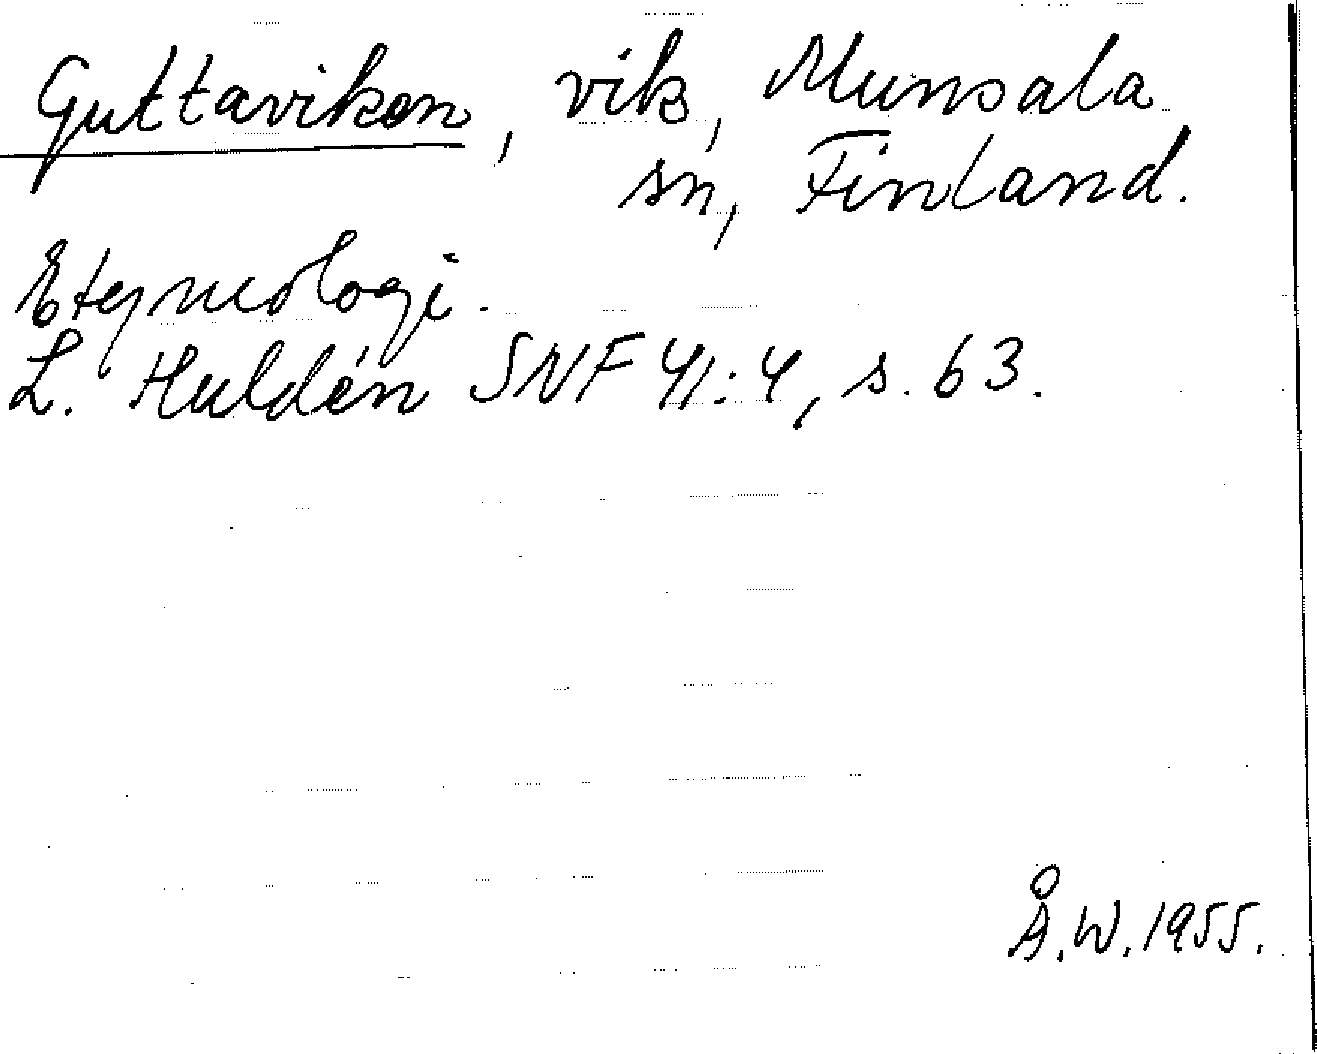 Guttaviken, vik, Munsala
sn, Finland.
Etymologi.
L. Huldén SNF 41:4, s. 63.
Å.W. 1955.